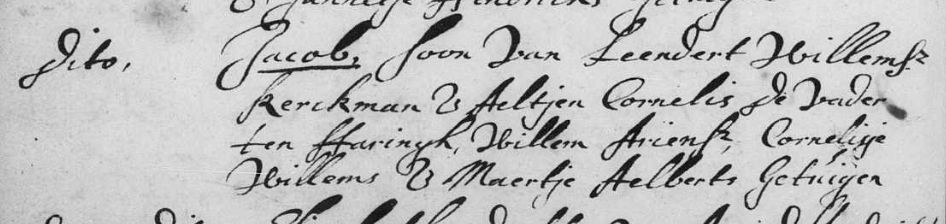 dito, Jacob, soon van Leendert Willemsz
Kerckman & Aeltjen Cornelis de vader
ten Haringh, Willem Ariensz, Cornelisje
Willems & Maertje Aelberts Getuijgen